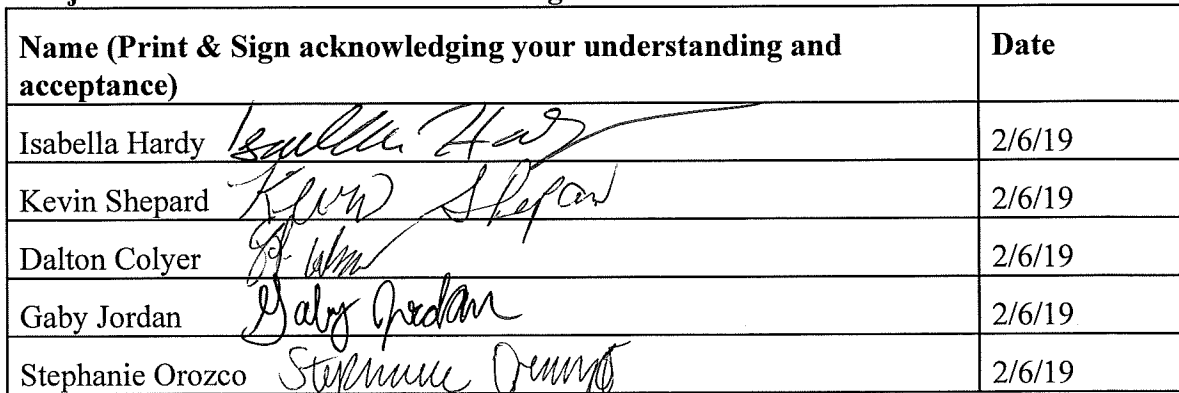 Name (Print & Sign acknowledging your understanding and
acceptance)
Date
Isabella Hardy Isabella Hardy 2/6/19
Kevin Shepard Kevin Shepard 2/6/19
Dalton Colyer 2/6/19
Gaby Jordan Gaby Jordan 2/6/19
Stephanie Orozco Stephanie Orozco 2/6/19